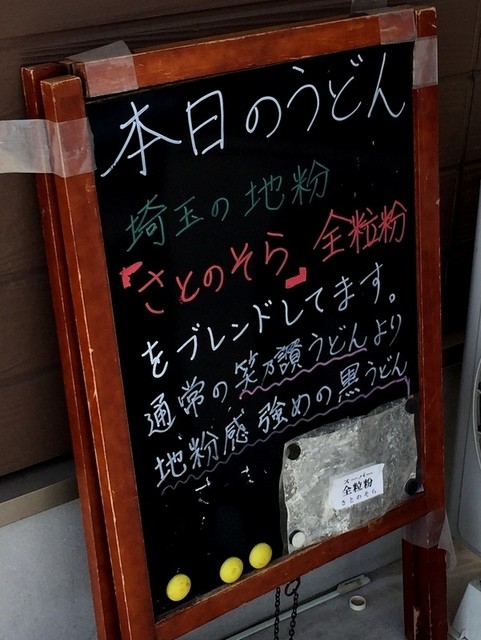 本日のうどん
埼玉の地粉
「さとのそら」全粒粉
をブレンドしてます。
通常の笑乃讃うどんより
地粉感強めの黒うどん
スーパー
全粒粉
さとのそら